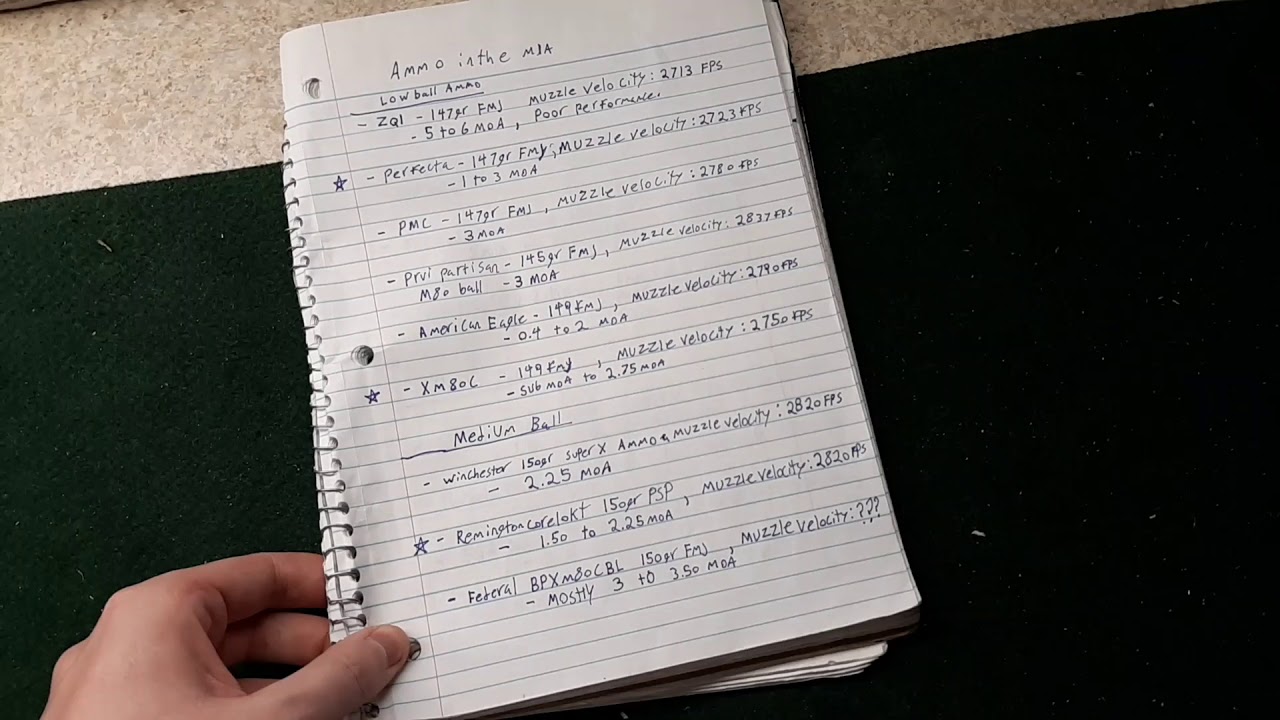 Ammo in the M1A
Lowball Ammo
- ZQI - 147gr FMJ Muzzle velocity: 2713 FPS
- 5 to 6 MOA, Poor Performance.
☆ - Perfecta - 147gr FMJ, Muzzle velocity: 2723 FPS
- 1 to 3 MOA
- PMC - 147gr FMJ, Muzzle velocity: 2780 FPS
- 3 MOA
- Prvi partisan - 145gr FMJ, Muzzle velocity: 2837 FPS
M80 ball - 3 MOA
- American Eagle - 149 FMJ, Muzzle velocity: 2790 FPS
- 0.4 to 2 MOA
☆ - XM80C - 149 FMJ, Muzzle velocity: 2750 FPS
- Sub MOA to 2.75 MOA
Medium Ball
- Winchester 150gr Super X Ammo Muzzle velocity: 2820 FPS
- 2.25 MOA
☆ - Remington corelokt 150gr PSP, Muzzle velocity: 2820 FPS
- 1.50 to 2.25 MOA
- Federal BPXM80CBL 150gr FMJ, Muzzle velocity: ???
- Mostly 3 to 3.50 MOA